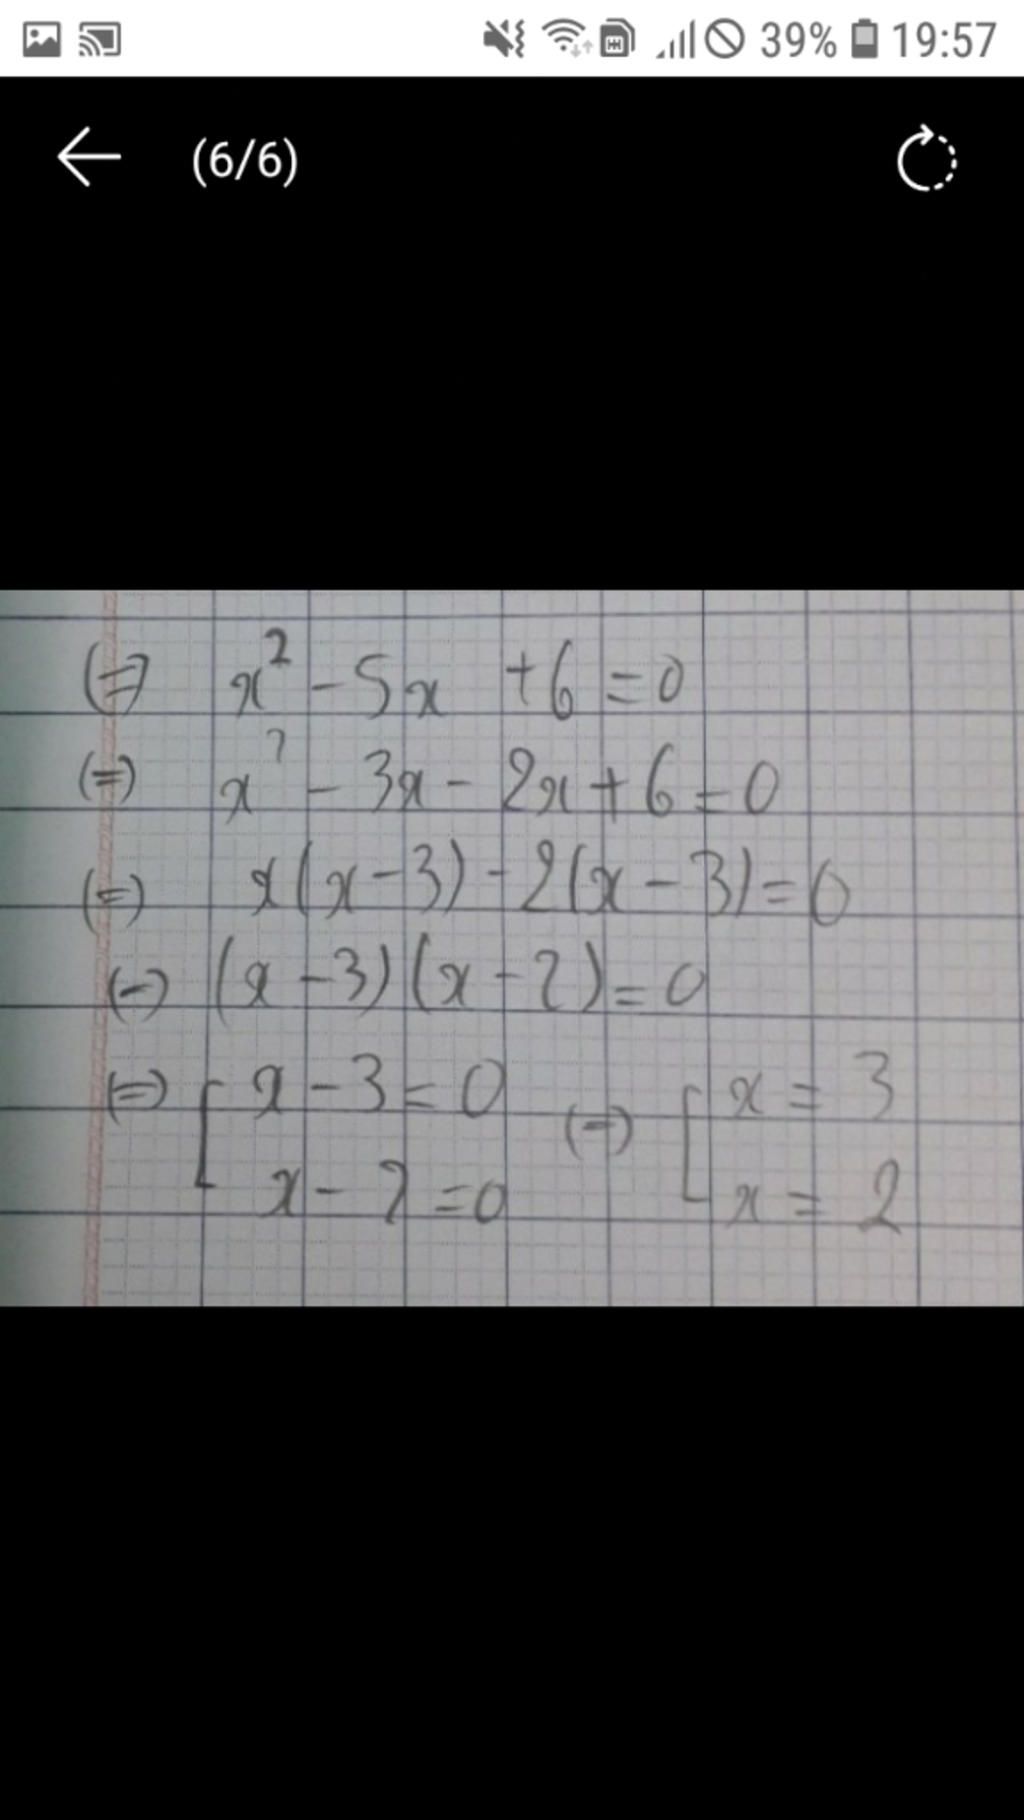 39% 19:57
(6/6)
(=) x² - 5x + 6 = 0
(=) x² - 3x - 2x + 6 = 0
(=) x(x - 3) - 2(x - 3) = 0
(=) (x - 3)(x - 2) = 0
(=) [ x - 3 = 0 (=) [ x = 3
x - 2 = 0 x = 2